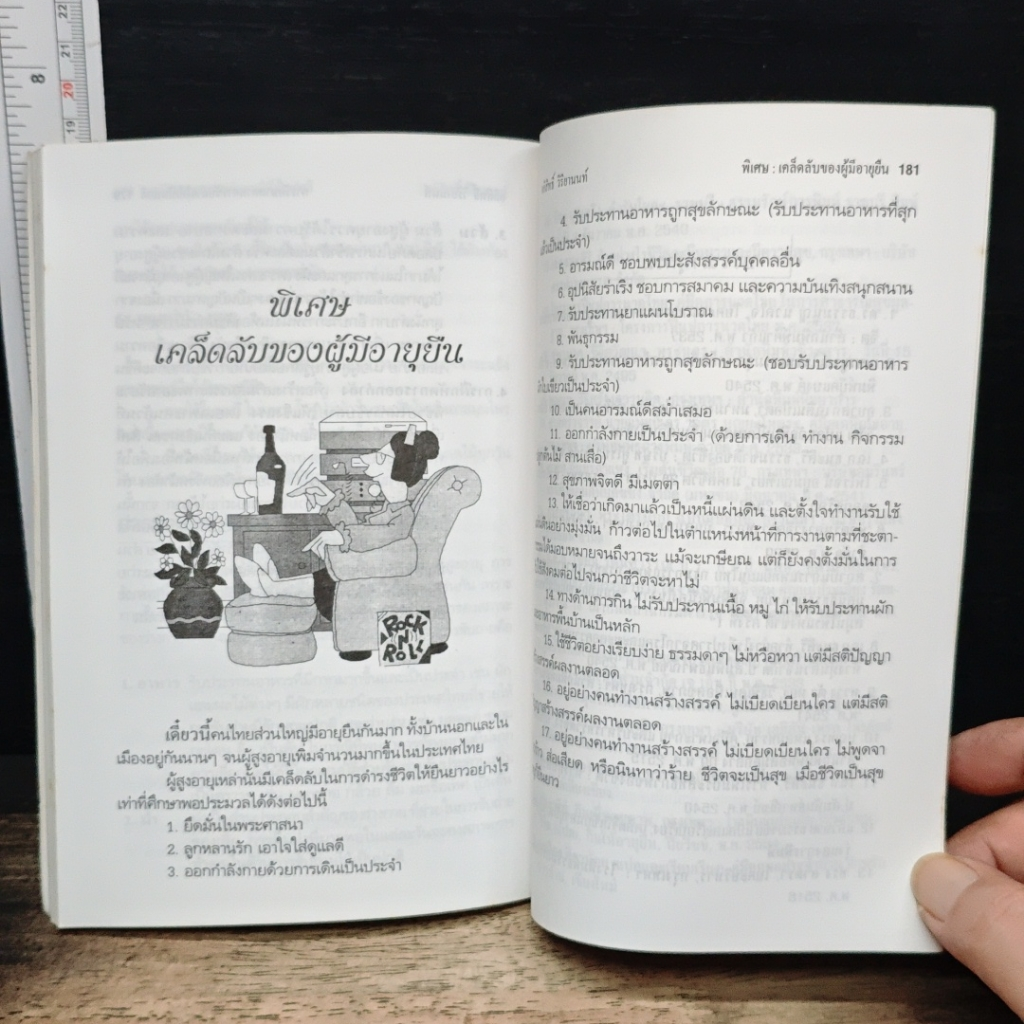 พิเศษ
เคล็ดลับของผู้มีอายุยืน
ROCK
N
ROLL
เดี๋ยวนี้คนไทยส่วนใหญ่มีอายุยืนกันมาก ทั้งบ้านนอกและใน
เมืองอยู่กันนานๆ จนผู้สูงอายุเพิ่มจำนวนมากขึ้นในประเทศไทย
ผู้สูงอายุเหล่านั้นมีเคล็ดลับในการดำรงชีวิตให้ยืนยาวอย่างไร
เท่าที่ศึกษาพอประมวลได้ดังต่อไปนี้
1. ยึดมั่นในพระศาสนา
2. ลูกหลานรัก เอาใจใส่ดูแลดี
3. ออกกำลังกายด้วยการเดินเป็นประจำ
วิริยานนท์
พิเศษ : เคล็ดลับของผู้มีอายุยืน 181
4. รับประทานอาหารถูกสุขลักษณะ (รับประทานอาหารที่สุก
เป็นประจำ)
5. อารมณ์ดี ชอบพบปะสังสรรค์บุคคลอื่น
6. อุปนิสัยร่าเริง ชอบการสมาคม และความบันเทิงสนุกสนาน
7. รับประทานยาแผนโบราณ
8. พันธุกรรม
9. รับประทานอาหารถูกสุขลักษณะ (ชอบรับประทานอาหาร
เป็นประจำ)
10. เป็นคนอารมณ์ดีสม่ำเสมอ
11. ออกกำลังกายเป็นประจำ (ด้วยการเดิน ทำงาน กิจกรรม
สานเสื่อ)
12. สุขภาพจิตดี มีเมตตา
13. ให้เชื่อว่าเกิดมาแล้วเป็นหนี้แผ่นดิน และตั้งใจทำงานรับใช้
อย่างมุ่งมั่น ก้าวต่อไปในตำแหน่งหน้าที่การงานตามที่ชะตา-
ได้มอบหมายจนถึงวาระ แม้จะเกษียณ แต่ก็ยังคงตั้งมั่นในการ
ต่อไปจนกว่าชีวิตจะหาไม่
14. ทางด้านการกิน ไม่รับประทานเนื้อ หมู ไก่ ให้รับประทานผัก
อาหารพื้นบ้านเป็นหลัก
15. ใช้ชีวิตอย่างเรียบง่าย ธรรมดาๆ ไม่หวือหวา แต่มีสติปัญญา
ผลงานตลอด
16. อยู่อย่างคนทำงานสร้างสรรค์ ไม่เบียดเบียนใคร แต่มีสติ
สร้างสรรค์ผลงานตลอด
17. อยู่อย่างคนทำงานสร้างสรรค์ ไม่เบียดเบียนใคร ไม่พูดจา
ส่อเสียด หรือนินทาว่าร้าย ชีวิตจะเป็นสุข เมื่อชีวิตเป็นสุข
8
22
21
20
19